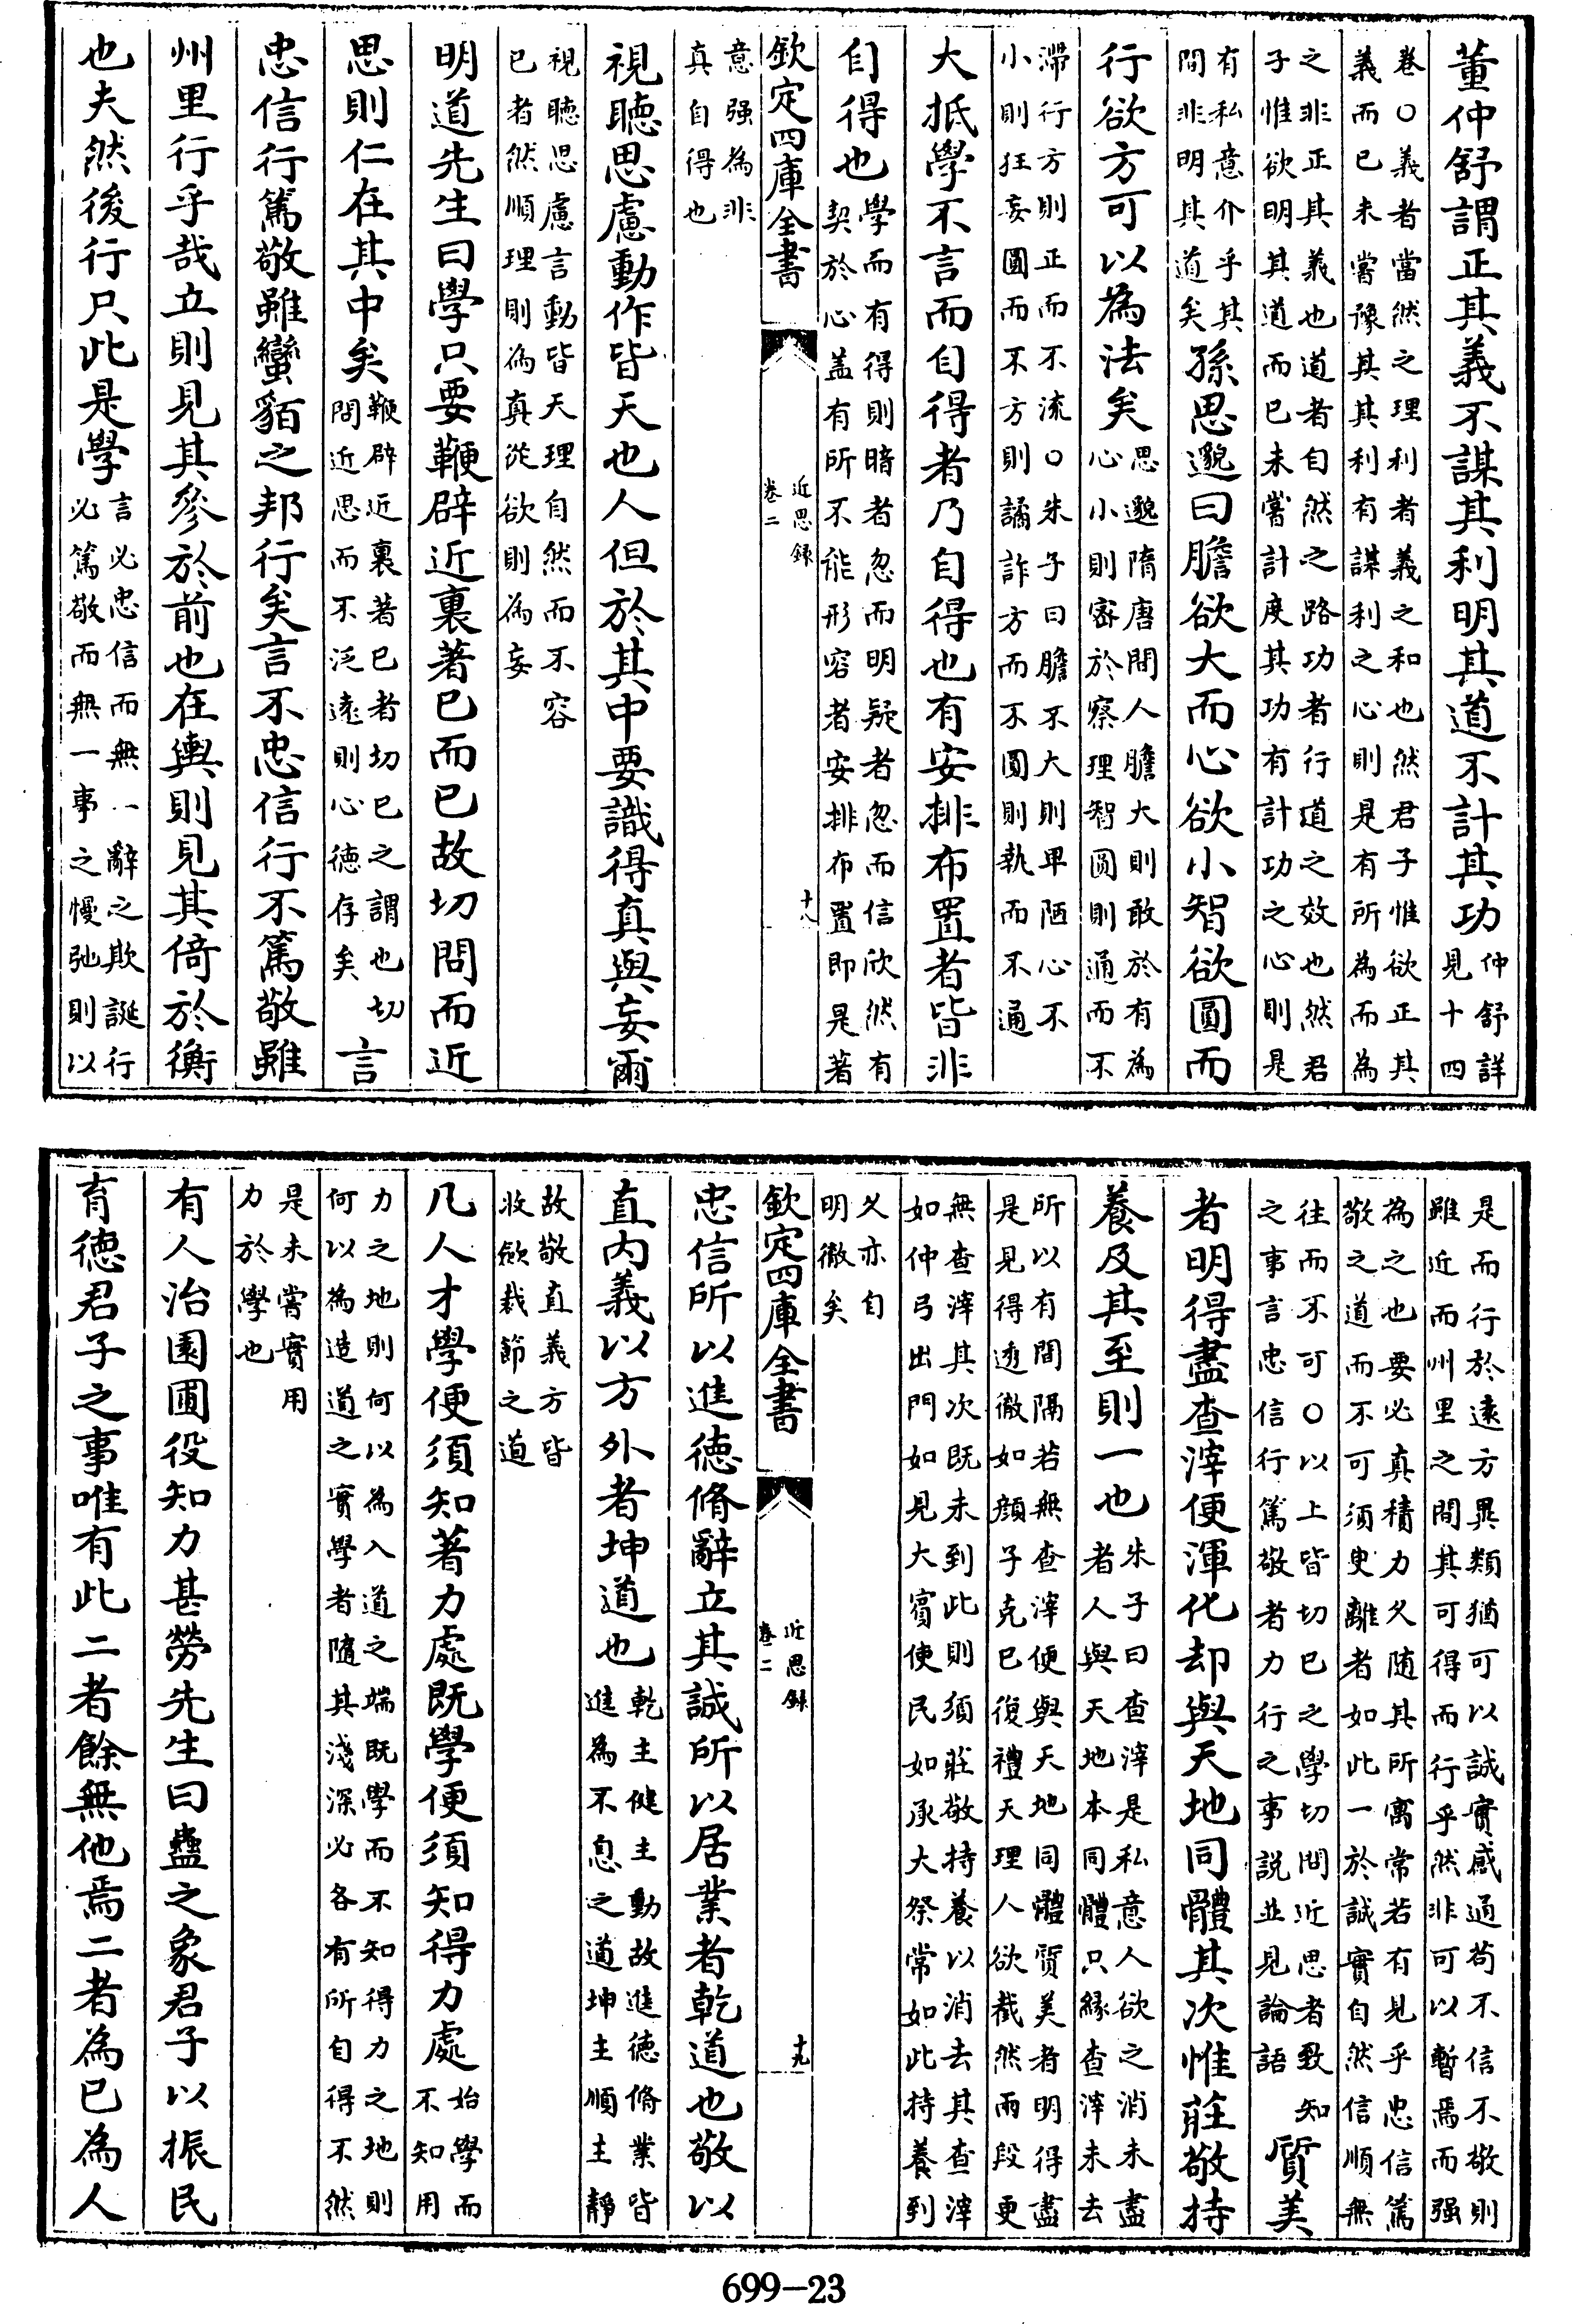 董仲舒謂正其義不謀其利明其道不計其功仲舒詳見十四
卷〇義者當然之理利者義之和也然君子惟欲正其義而已未嘗豫其其利有謀利之心則是有所為而為
之非正其義也道者自然之路功者行道之效也然君子惟欲明其道而已未嘗計度其功有計功之心則是
有私意介乎其間非明其道矣孫思邈曰膽欲大而心欲小智欲圓而
行欲方可以為法矣思邈隋唐間人膽大則敢於有為心小則密於察理智圓則通而不
滯行方則正而不流〇朱子曰膽不大則卑陋心不小則狂妄圓而不方則譎詐方而不圓則執而不通
大抵學不言而自得者乃自得也有安排布置者皆非
自得也學而有得則暗者忽而明疑者忽而信欣然有契於心盖有所不能形容者安排布置即是著
欽定四庫全書 近思錄 卷二 十八
意强為非真自得也
視聽思慮動作皆天也人但於其中要識得真與妄爾
視聽思慮言動皆天理自然而不容已者然順理則為真從欲則為妄
明道先生曰學只要鞭辟近裏著已而已故切問而近
思則仁在其中矣鞭辟近裏著已者切已之謂也切問近思而不泛遠則心德存矣言
忠信行篤敬雖蠻貊之邦行矣言不忠信行不篤敬雖
州里行乎哉立則見其參於前也在輿則見其倚於衡
也夫然後行只此是學言必忠信而無一辭之欺誕行必篤敬而無一事之慢弛則以
是而行於遠方異類猶可以誠實感通苟不信不敬則雖近而州里之間其可得而行乎然非可以暫焉而强
為之也要必真積力久随其所寓常若有見乎忠信篤敬之道而不可須臾離者如此一於誠實自然信順無
往而不可〇以上皆切已之學切問近思者致知之事言忠信行篤敬者力行之事說並見論語質美
者明得盡查滓便渾化却與天地同體其次惟莊敬持
養及其至則一也朱子曰查滓是私意人欲之消未盡者人與天地本同體只緣查滓未去
所以有間隔若無查滓便與天地同體質美者明得盡是見得透徹如顔子克已復禮天理人欲截然兩段更
無查滓其次既未到此則須莊敬持養以消去其查滓如仲弓出門如見大賓使民如承大祭常如此持養到
久亦自明徹矣
欽定四庫全書 近思錄 卷二 十九
忠信所以進德脩辭立其誠所以居業者乾道也敬以
直内義以方外者坤道也乾主健主動故進德脩業皆進為不息之道坤主順主靜
故敬直義方皆收斂裁節之道
凡人才學便須知著力處既學便須知得力處始學而不知用
力之地則何以為入道之端既學而不知得力之地則何以為造道之實學者隨其淺深必各有所自得不然
是未嘗實用力於學也
有人治園圃役知力甚勞先生曰蠱之象君子以振民
育德君子之事唯有此二者餘無他焉二者為已為人
699—23